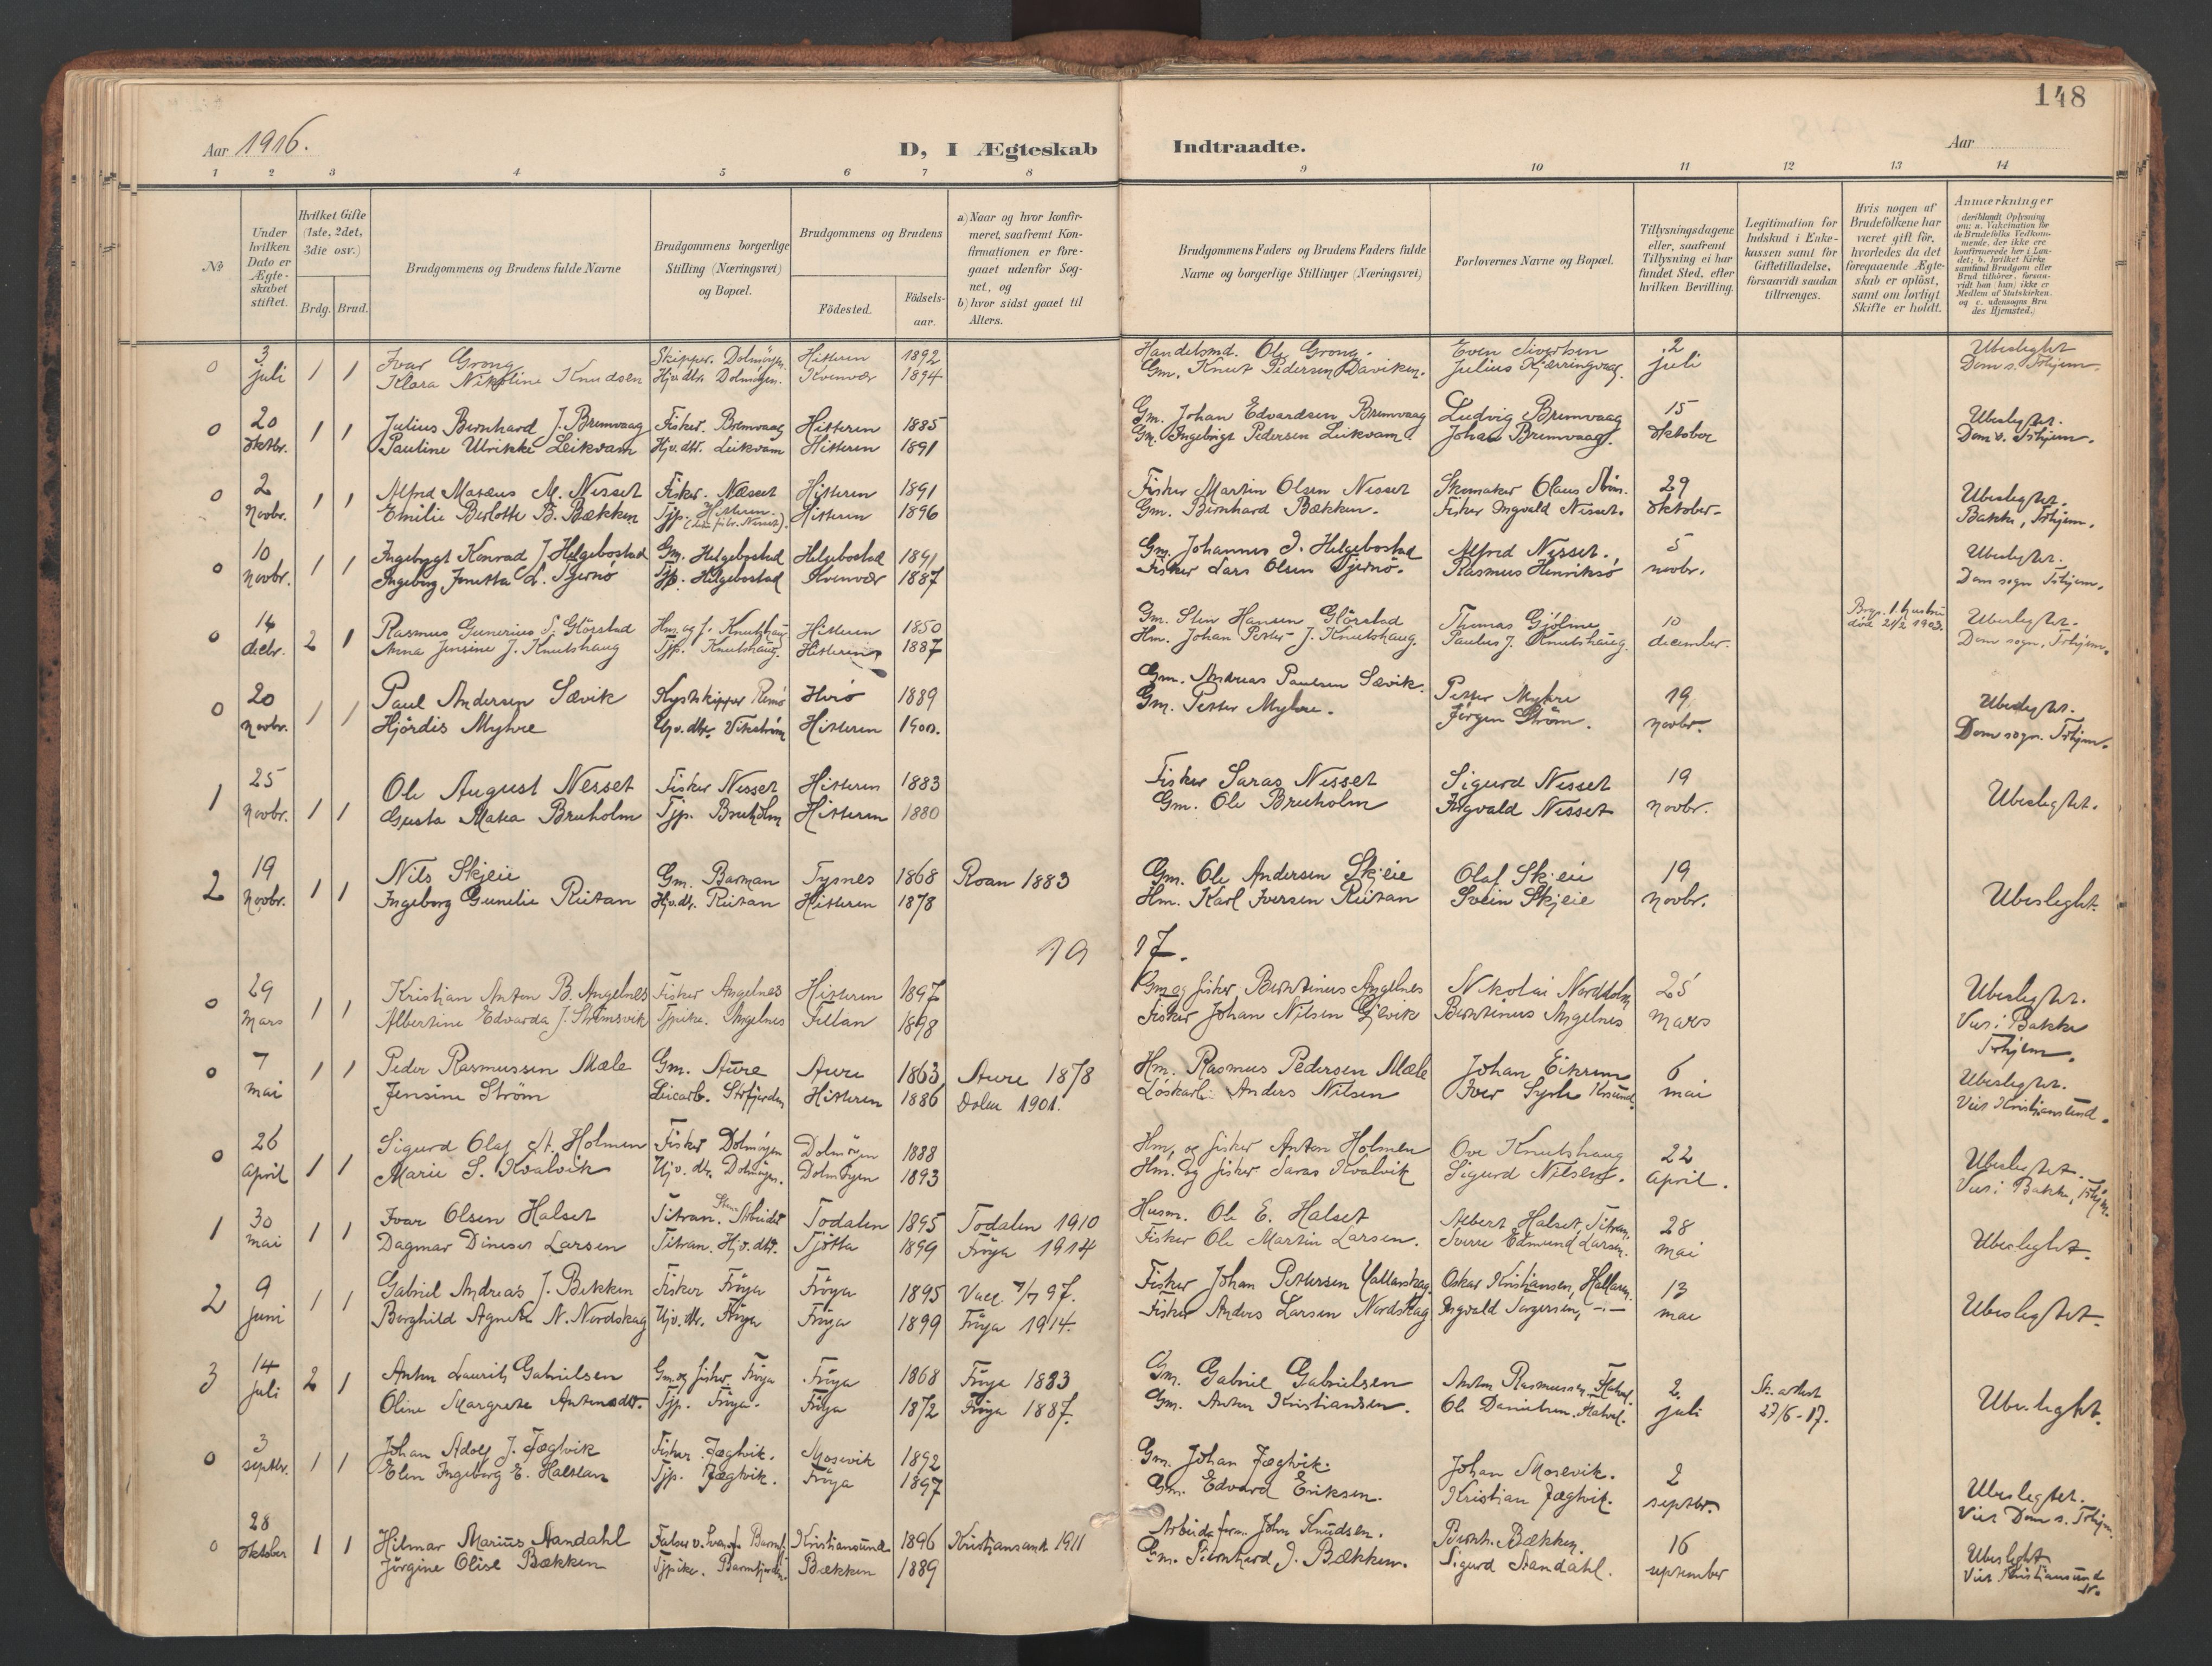 148
Aar 1916. D, I Ægteskab Indtraadte. Aar
1 2 3 4 5 6 7 8 9 10 11 12 13 14
№
Under hvilken Dato er Ægteskabet stiftet.
Hvilket Gifte (1ste, 2det, 3die osv.)
Brdg. Brud.
Brudgommens og Brudens fulde Navne
Brudgommens borgerlige Stilling (Næringsvei) og Bopæl.
Brudgommens og Brudens
Födested. Födselsaar.
a) Naar og hvor konfirmeret, saafremt Konfirmationen er foregaaet udenfor Sognet, og
b) hvor sidst gaaet til Alters.
Brudgommens Faders og Brudens Faders fulde Navne og borgerlige Stillinger (Næringsvei)
Forlovernes Navne og Bopæl.
Tillysningsdagene eller, saafremt Tillysning ei har fundet Sted, efter hvilken Bevilling.
Legitimation for Indskud i Enkekassen samt for Giftetilladelse, forsaavidt saadan tiltrænges.
Hvis nogen af Brudefolkene har været gift för, hvorledes da det foregaaende Ægteskab er oplöst, samt om lovligt Skifte er holdt.
Anmærkninger (deriblandt Oplysning om: a. Vakcination for de Brudefolks Vedkommende, der ikke ere konfirmerede her i Landet; b. hvilket Kirkesamfund Brudgom eller Brud tilhörer, forsaavidt han (hun) ikke er Medlem af Statskirken. og c. udensogns Brudes Hjemsted.)
0 3 juli 1 1 Ivar Grong Skipper. Dolmöyen. Hitteren 1892 Handelsmd. Ole Grong. Even Sivertsen 2 juli Ubeslegtet
Klara Nikoline Knudsen Hjv. dtr. Dolmöyen. Kvenvær 1894 Gm. Knut Pedersen Daviken. Julius Kjærringvaag. Dom s. Trhjem.
0 20 oktbr. 1 1 Julius Bernhard J. Bremvaag Fisker. Bremvaag Hitteren 1885 Gm. Johan Edvardsen Bremvaag Ludvig Bremvaag 15 oktober Ubeslegtet.
Pauline Ulrikke Leikvam Hjv. dtr. Leikvam Hitteren 1891 Gm. Ingebrigt Pedersen Leikvam. Johan Bremvaag. Dom s. Trhjem.
0 2 Novbr. 1 1 Alfred Matæus M. Nesset Fisker. Næsset Hitteren 1891 Fisker Martin Olsen Nesset Skomaker Olaus 29 oktober. Ubeslegtet.
Emilie Berlotte B. Bækken Tjp. Hitteren. Hitteren 1896 Gm. Bernhard Bækken. Fisker Ingvald Nesset. Bakke, Trhjem.
0 10 Novbr. 1 1 Ingebrygt Konrad J. Helgebostad Gm. Helgebostad Helgebostad 1891 Gm. Johannes I. Helgebostad Alfred Nesset. 5 novbr. Ubeslegtet.
Ingeborg Jonetta L. Tjernö Tjp. Helgebostad Kvenvær 1887 Fisker Lars Olsen Tjernö. Rasmus Henriksö Dom sogn Trhjem.
0 14 decbr. 2 1 Rasmus Gunerius S. Glörstad Hm. og f. Knutshaug Hitteren 1850 Gm. Sten Hansen Glörstad Thomas Gjölme 10 december. Brgs. 1. hustru Ubeslegtet.
Anna Jensine J. Knutshaug Tjp. Knutshaug. Hitteren 1887 Hm. Johan Petter J. Knutshaug. Paulus J. Knutshaug. död 21/2 1903. Dom sogn, Trhjem.
0 20 Novbr. 1 1 Paul Andersen Sævik Kystskipper Hvió 1889 Gm. Andreas Paulsen Sævik. Petter Myhre 19 novbr. Ubeslegtet.
Hjördis Myhre Hjv. dtr. Vikström Hitteren 1900. Gm. Petter Myhre. Jörgen Ström. Dom sogn. Trhjem.
1 25 Novbr. 1 1 Ole August Nesset Fisker Nesset Hitteren 1883 Fisker Saras Nesset Sigurd Nesset 19 novbr. Ubeslegtet.
Gusta Matea Bruholm Tjp. Bruholm Hitteren 1880 Gm. Ole Bruholm Ingvald Nesset
2 19 Novbr. 1 1 Nils Skjeie Gm. Barman Tysnes 1868 Roan 1883 Gm. Ole Andersen Skjeie Olaf Skjeie 19 Novbr. Ubeslegtet.
Ingeborg Gunelie Reitan Hjv. dtr. Reitan Hitteren 1878 Hm. Karl Iversen Reitan Svein Skjeie
1917.
0 29 Mars 1 1 Kristian Anton B. Angelnes Fisker Angelnes Hitteren 1897 Gm og fisker Berntinus Angelnes Nikolai Nordholm 25 Mars Ubeslegtet.
Albertine Edvarda J. Strömsvik Tpike. Angelnes Fillan 1898 Fisker Johan Nilsen Gjevik Berntinus Angelnes Viet i Bakke Trhjem.
0 7 mai 1 1 Peder Rasmussen Mæle Gm. Aure Aure 1863 Aure 1878 Hm. Rasmus Pedersen Mæle Johan Eikrem 6 mai Ubeslegtet.
Jensine Ström Leicarb. Strfjorden Hitteren 1886 Dolm 1901. Löskarl: Anders Nilsen Iver Krsund. Viet Kristiansund.
0 26 April 1 1 Sigurd Olaf A. Holmen Fisker Dolmöyen Dolmöyen 1888 Hm. og fisker Anton Holmen Ove Knutshaug 22 April. Ubeslegtet.
Marie S. Kvalvik Hjv. dtr. Dolmöyen. Dolmöyen 1893 Hm. og fisker Saras Kvalvik Sigurd Nilsen. Viet i Bakke, Trhjem.
1 30 mai 1 1 Ivar Olsen Halset Titran. Sten Arbeider Todalen 1895 Todalen 1910 Husm. Ole E. Halset Albert Halset, Titran. 28 mai Ubeslegtet.
Dagmar Dineset Larsen Titran. Hjv. dtr. Tjötta 1899 Fröya 1914 Fisker Ole Martin Larsen. Sverre Edmund Larsen.
2 9 juni 1 1 Gabriel Andreas J. Bekken Fisker Fröya Fröya 1895 Vacc. 7/7 97. Fisker Johan Pettersen Hallarskag. Oskar Kristiansen, Hallaren. 13 mai Ubeslegtet.
Borghild Agnete N. Nordskag Hjv. dtr. Fröya Fröya 1899 Fröya 1914. Fisker Anders Larsen Nordskag Ingvald Torgersen, -"-
3 14 juli 2 1 Anton Laurits Gabrielsen Gm. og fisker Fröya Fröya 1868 Fröya 1883 Gm. Gabriel Gabrielsen Anton Rasmussen. Flatval. 2 juli Sk. attest 27/6-17. Ubeslegtet.
Oline Margrete Antonsdtr. Tjp. Fröya. Fröya 1872 Fröya 1887. Gm. Anton Kristiansen. Ole Danielsen. Flatval.
0 3 septbr. 1 1 Johan Adolf J. Jægtvik Fisker. Jægtvik. Mosevik 1892 Gm. Johan Jægtvik. Johan Mosevik. 2 septbr. Ubeslegtet.
Elen Ingeborg E. Haltlan Tjp. Jægtvik. Fröya 1897 Gm. Edvard Eriksen. Kristian Jægtvik. Viet Dom s. Trhjem.
0 28 oktober 1 1 Hilmar Marius Aandahl Barmfj. Kristiansund 1896 Kristiansund 1911 Arbeidsform. John Knudsen. Bernh. Bækken. 16 september Ubeslegtet
Jörgine Olise Bækken Tjpike. Barmfjorden. Bækken 1889 Gm. Bernhard J. Bækken. Sigurd Aandahl. Viet Kristiansund N.